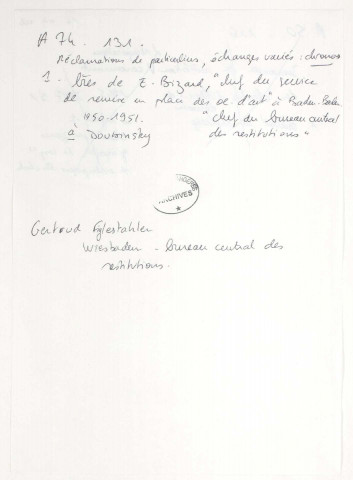 A 74. 131.
Réclamations de particuliers, échanges variés : chronos
1 - Ltres de E. Bizard, "chef du service
de remise en place des oe. d'art" à Baden-Baden
1950-1951. "chef du bureau central
à Doubinsky des restitutions"
ARCHIVES
Gertrud
Wiesbaden - bureau central des
restitutions.